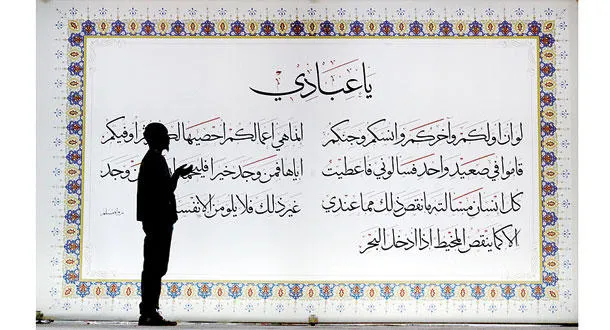 يا عبادي
لو ان اولكم وآخركم وانسكم وجنكم
قاموا في صعيد واحد فسالوني فاعطيت
كل انسان مسالته ما نقص ذلك مما عندي
الا كما ينقص المخيط اذا ادخل البحر
انما هي اعمالكم احصيها لكم اوفيكم
اياها فمن وجد خيرا وجد
غير ذلك فلا يلومن الا نفسه